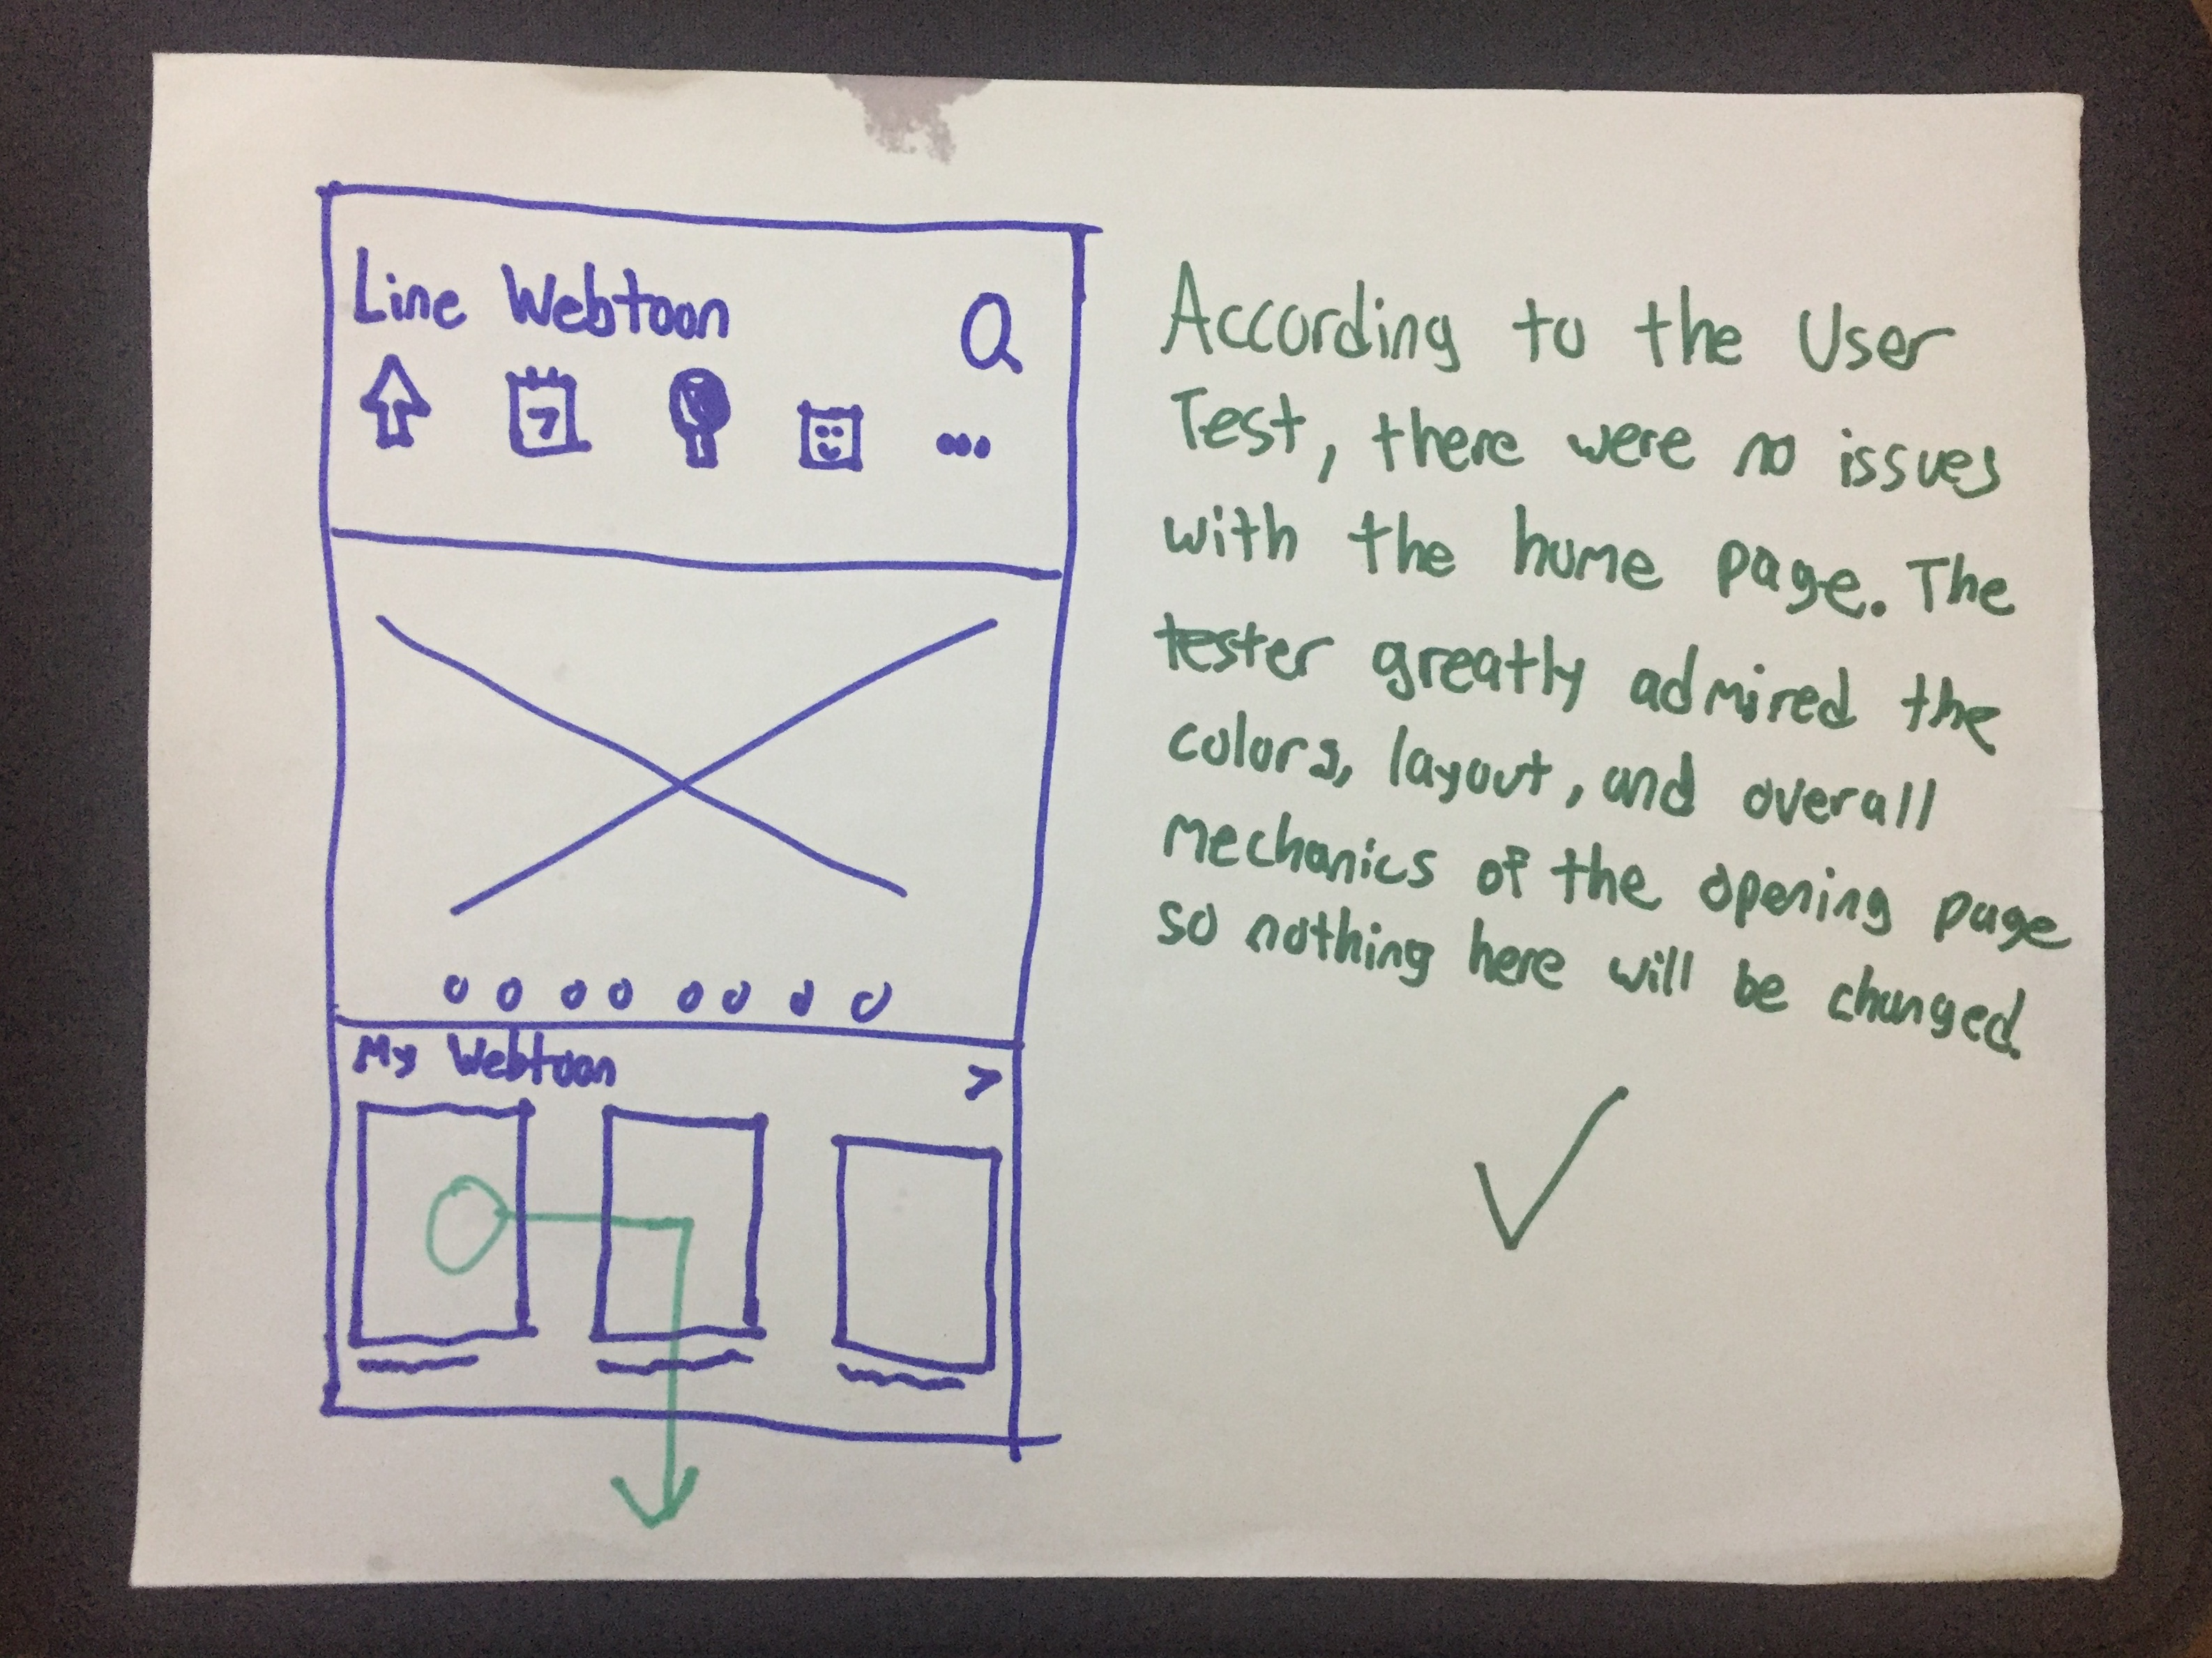 Line Webtoon
7
My Webtoon >
According to the User
Test, there were no issues
with the home page. The
tester greatly admired the
colors, layout, and overall
mechanics of the opening page
so nothing here will be changed.